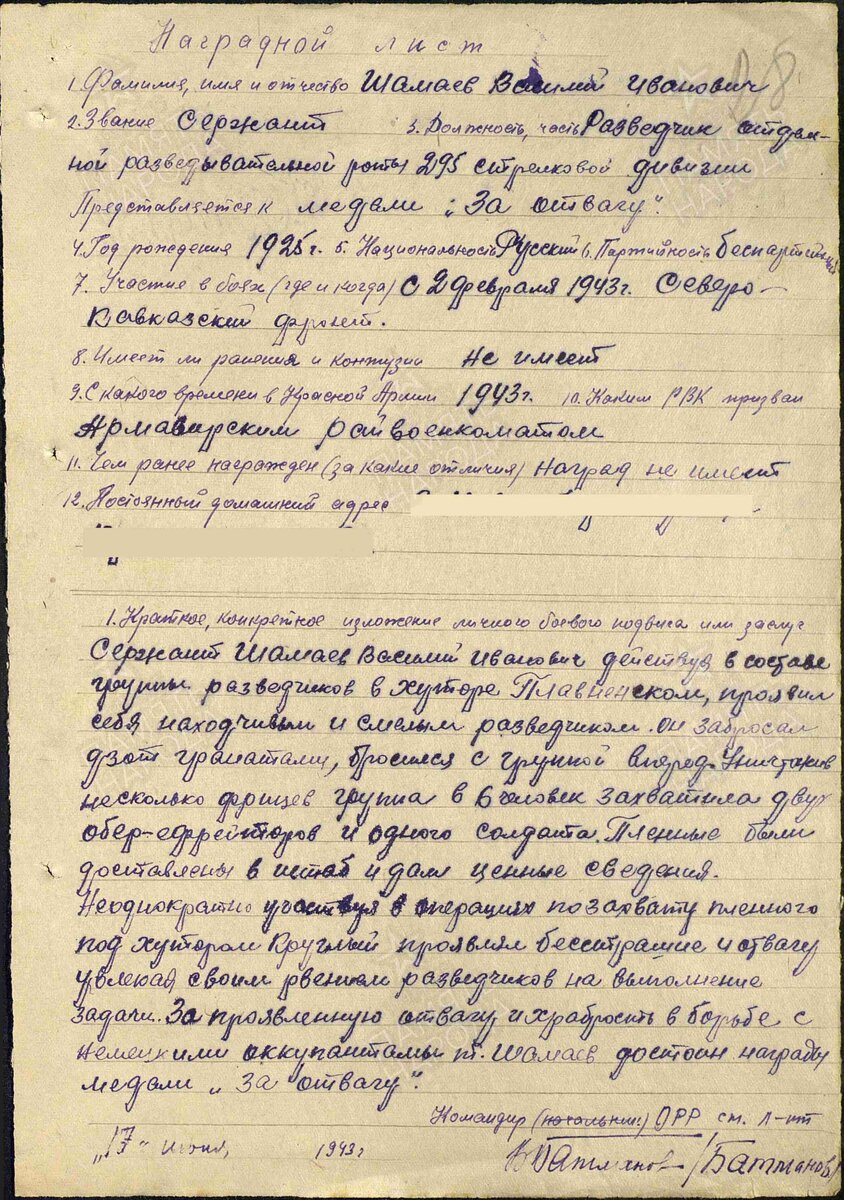 Наградной лист
28
1. Фамилия, имя и отчество Шамаев Василий Иванович
2. Звание Сержант 3. Должность, часть Разведчик отдель-
ной разведывательной роты 295 стрелковой дивизии
Представляется к медали "За отвагу".
4. Год рождения 1925 г. 5. Национальность Русский 6. Партийность Беспартийный
7. Участие в боях (где и когда) С 2 февраля 1943 г. Северо-
Кавказский фронт.
8. Имеет ли ранения и контузии не имеет
9. С какого времени в Красной Армии 1943 г. 10. Каким РВК призван
Армавирским райвоенкоматом
11. Чем ранее награжден (за какие отличия) наград не имеет
12. Постоянный домашний адрес
1. Краткое, конкретное изложение личного боевого подвига или заслуг
Сержант Шамаев Василий Иванович действуя в составе
группы разведчиков в хуторе Плавненском, проявил
себя находчивым и смелым разведчиком. Он забросал
дзот гранатами, бросился с группой вперед. Уничтожив
несколько фрицев группа в 6 человек захватила двух
обер-ефрейторов и одного солдата. Пленные были
доставлены в штаб и дали ценные сведения.
Неоднократно участвуя в операциях по захвату пленного
под хутором Круглый проявлял бесстрашие и отвагу
увлекая своим рвением разведчиков на выполнение
задачи. За проявленную отвагу и храбрость в борьбе с
немецкими оккупантами т. Шамаев достоин награды
медали "За отвагу".
Командир (начальник) ОРР ст. л-нт
"17" июня 1943 г. Батманов /Батманов/